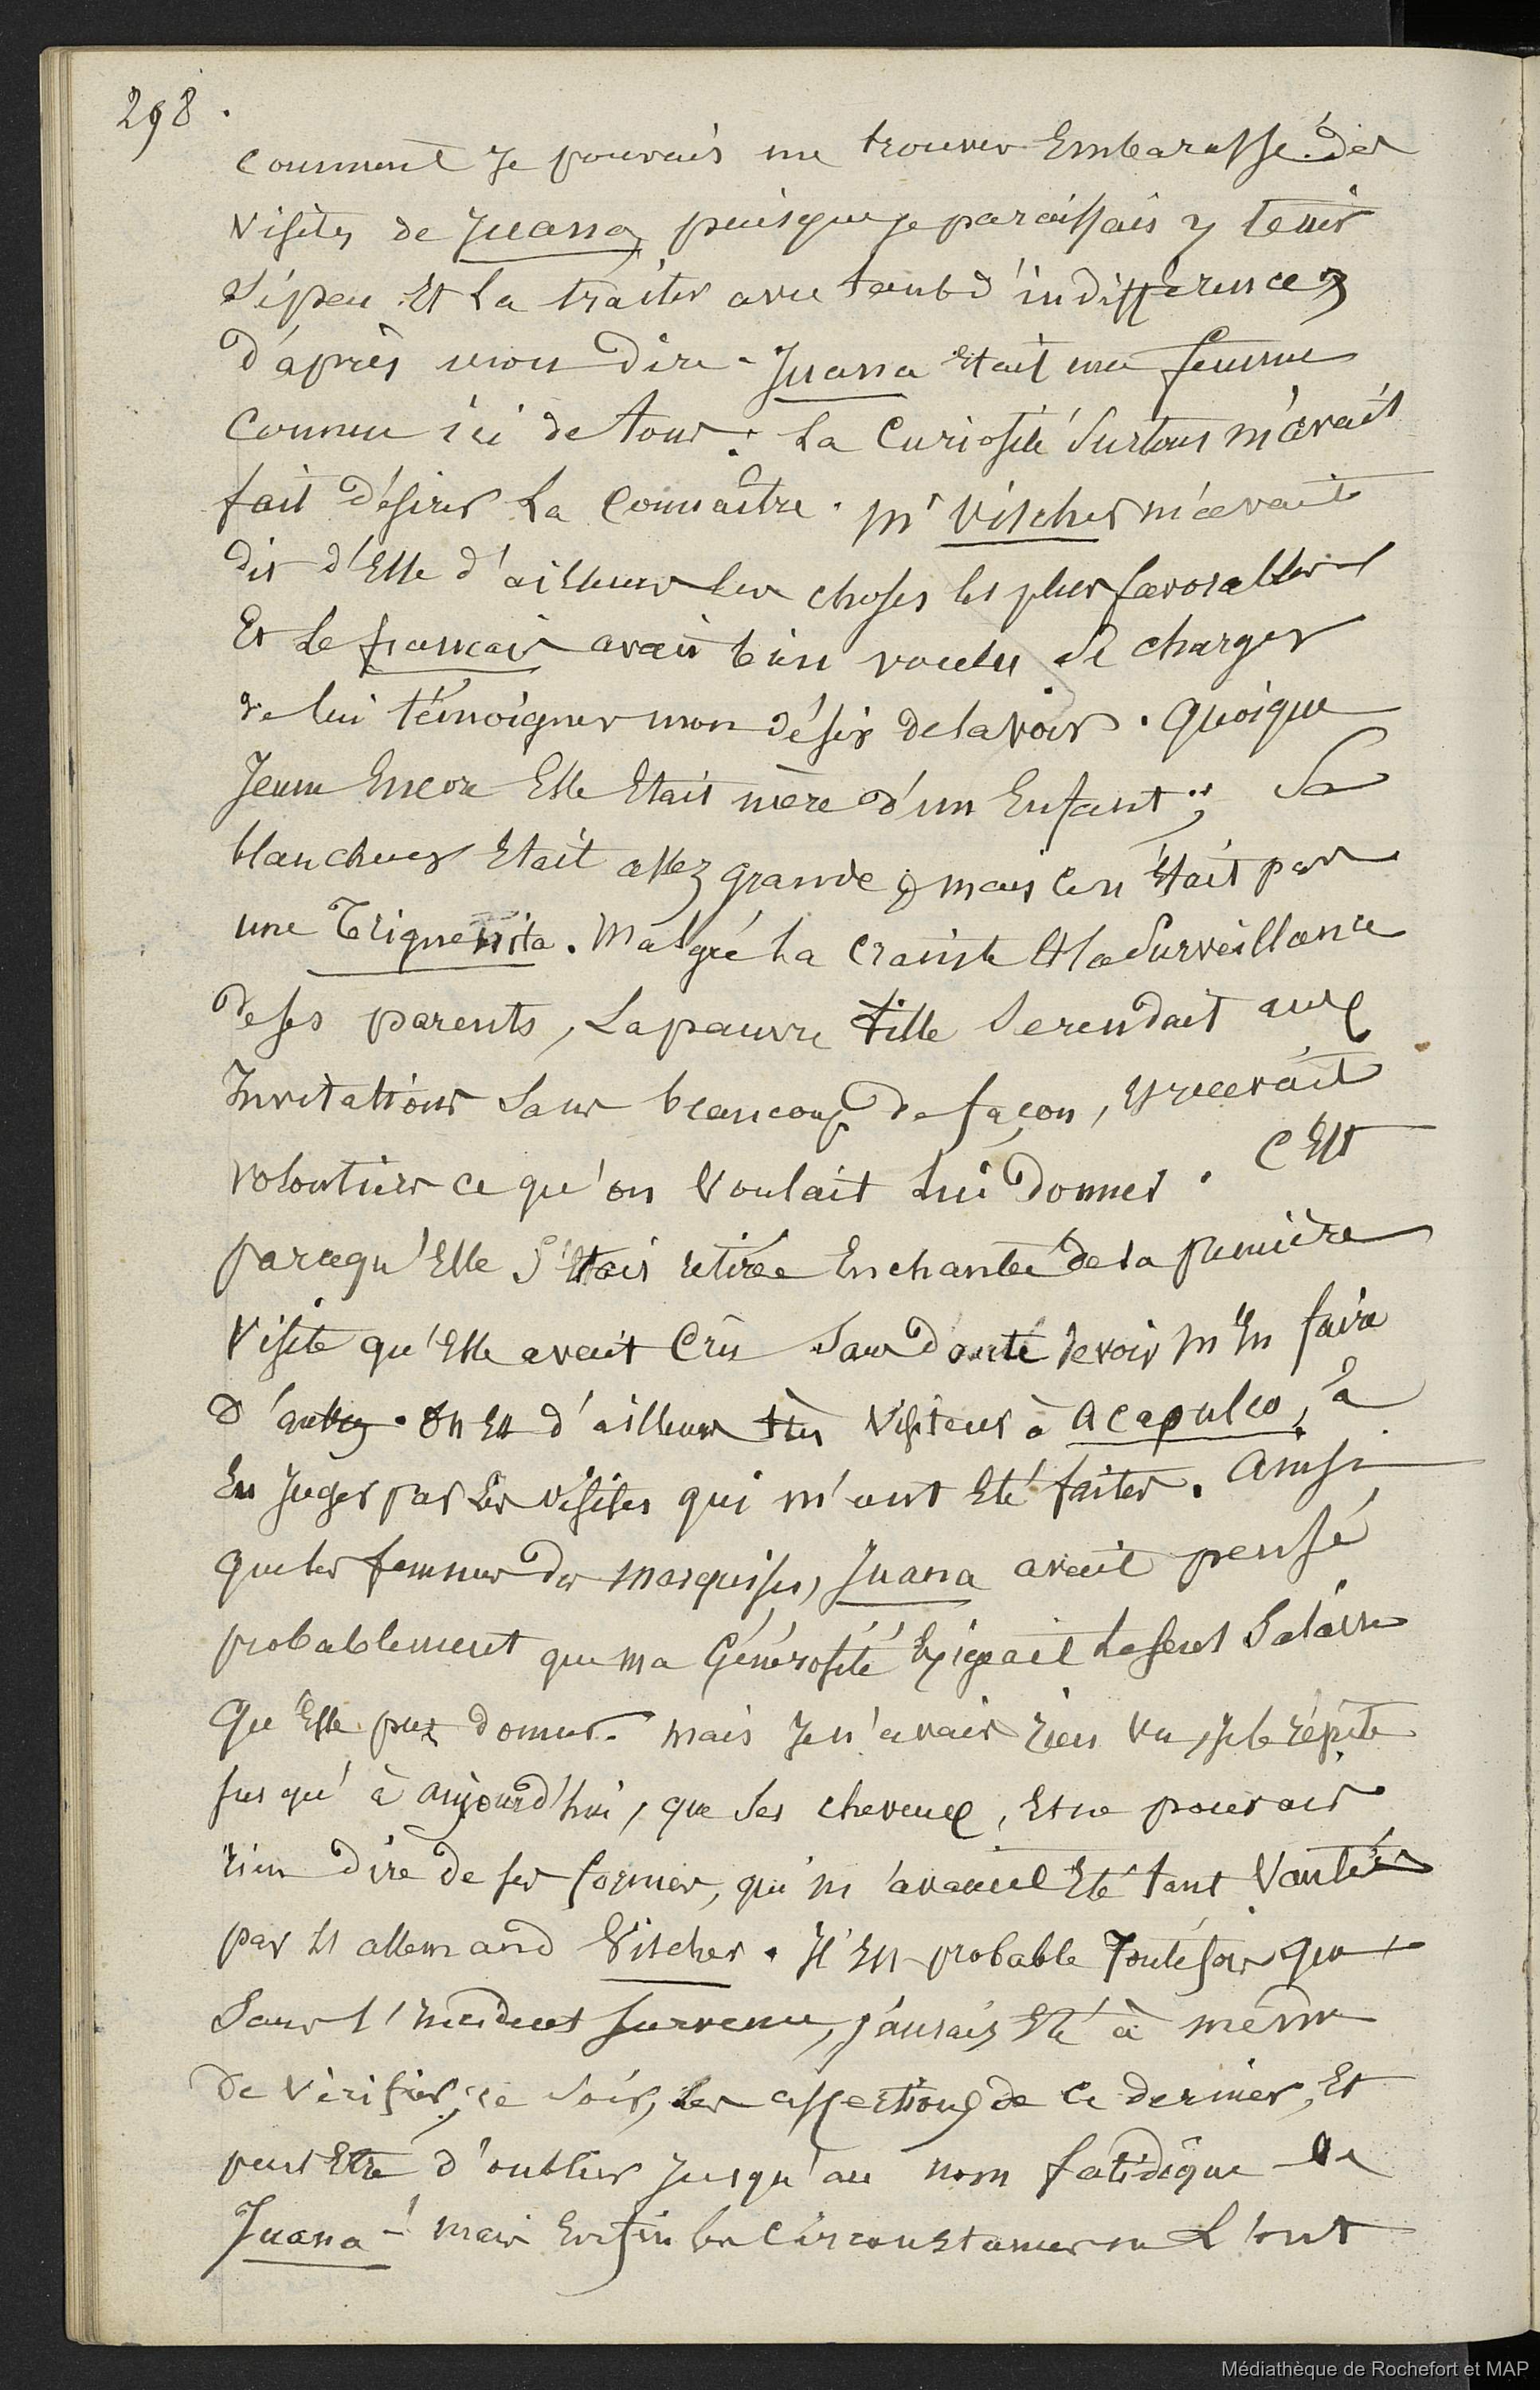 298.
comment Je pouvais me trouver Embarassé des
visites de Juana, puisque je paraissais y tenir
si peu Et la traiter avec tant d'indifférence,
d'après mon dire - Juana Etait une femme
connue ici de tous. La Curiosité Surtout m'avait
fait désirer La Connaître. Mr Vischer m'avait
dit d'Elle d'ailleurs les choses les plus favorables
Et le français avait bien voulu se charger
de lui témoigner mon désir de la voir. Quoique
Jeune Encore Elle Etait mère d'un Enfant; Sa
blancheur Etait assez grande, mais ce n'Etait pas
une Trigueñita. Malgré la Crainte Et la Surveillance
de ses parents, La pauvre fille Se rendait aux
Invitations Sans beaucoup de façon, et recevait
volontiers ce qu'on Voulait lui donner. C'Est
parcequ'Elle S'Etait retirée Enchantée de la première
Visite qu'Elle avait Crû Sans doute devoir m'En faire
d'autres. On Est d'ailleurs très Visiteur à Acapulco, à
En Juger par les Visites qui m'ont Eté faites. Ainsi
que les femmes des Marquises, Juana avait pensé
probablement que ma Générosité Exigeait le seul Salaire
qu'Elle put donner. Mais Je n'avais rien vu, Je le répète
Jusqu'à aujourd'hui, que Ses cheveux, Et ne pouvais
rien dire de ses formes, qui m'avaient Eté tant Vantées
par l'allemand Vischer. Il Est probable Toutefois que
Sans l'Incident survenu, j'aurais Eté à même
de vérifier, ce Soir, les assertions de ce dernier, Et
peut Etre d'oublier Jusqu'au nom fatidique de
Juana - ! Mais Enfin les Circonstances ne L'ont
Médiathèque de Rochefort et MAP